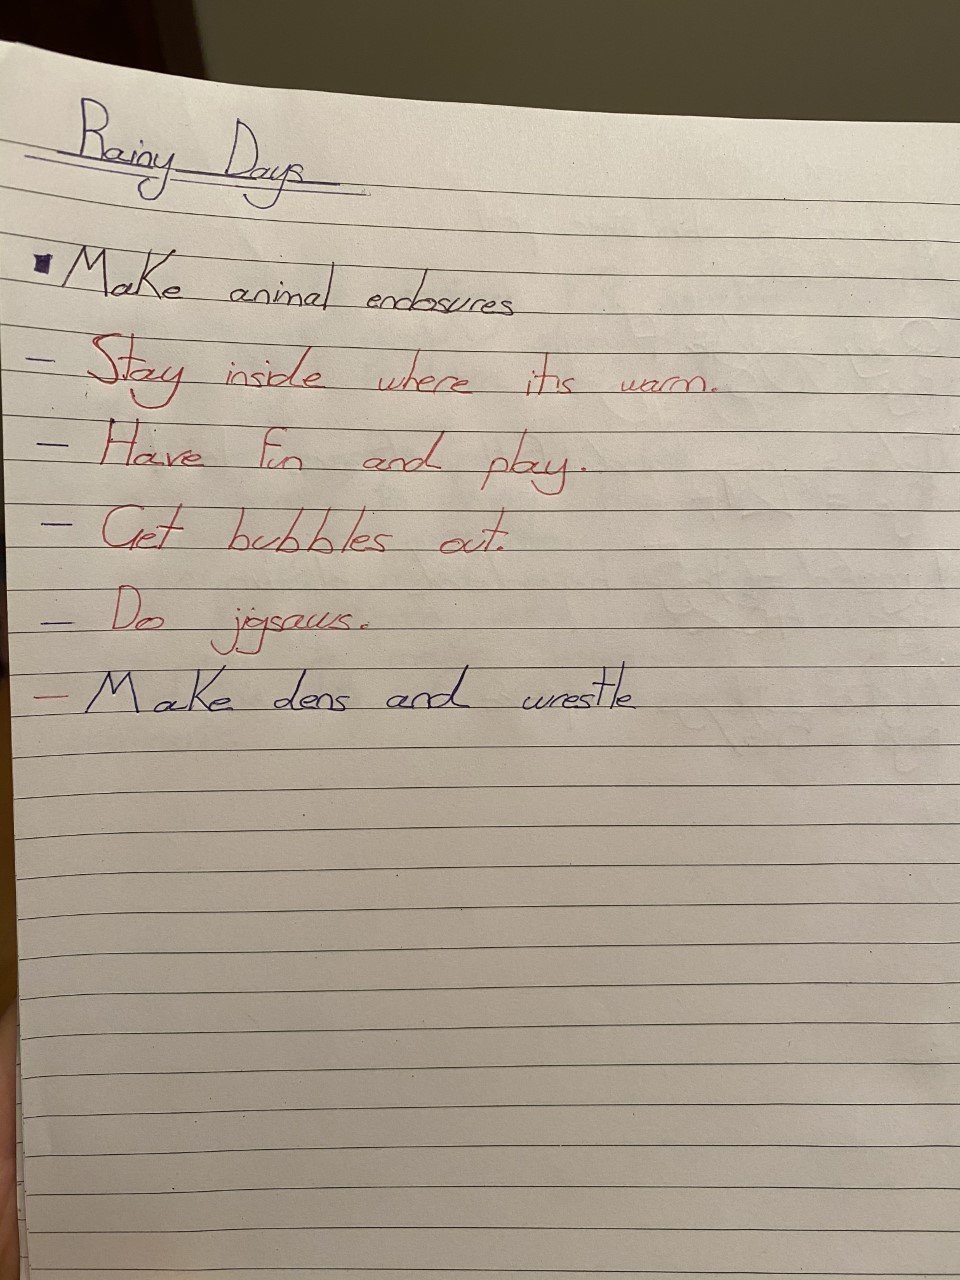 Rainy Days
▪ Make animal enclosures
- Stay inside where it's warm.
- Have fun and play.
- Get bubbles out.
- Do jigsaws.
- Make dens and wrestle